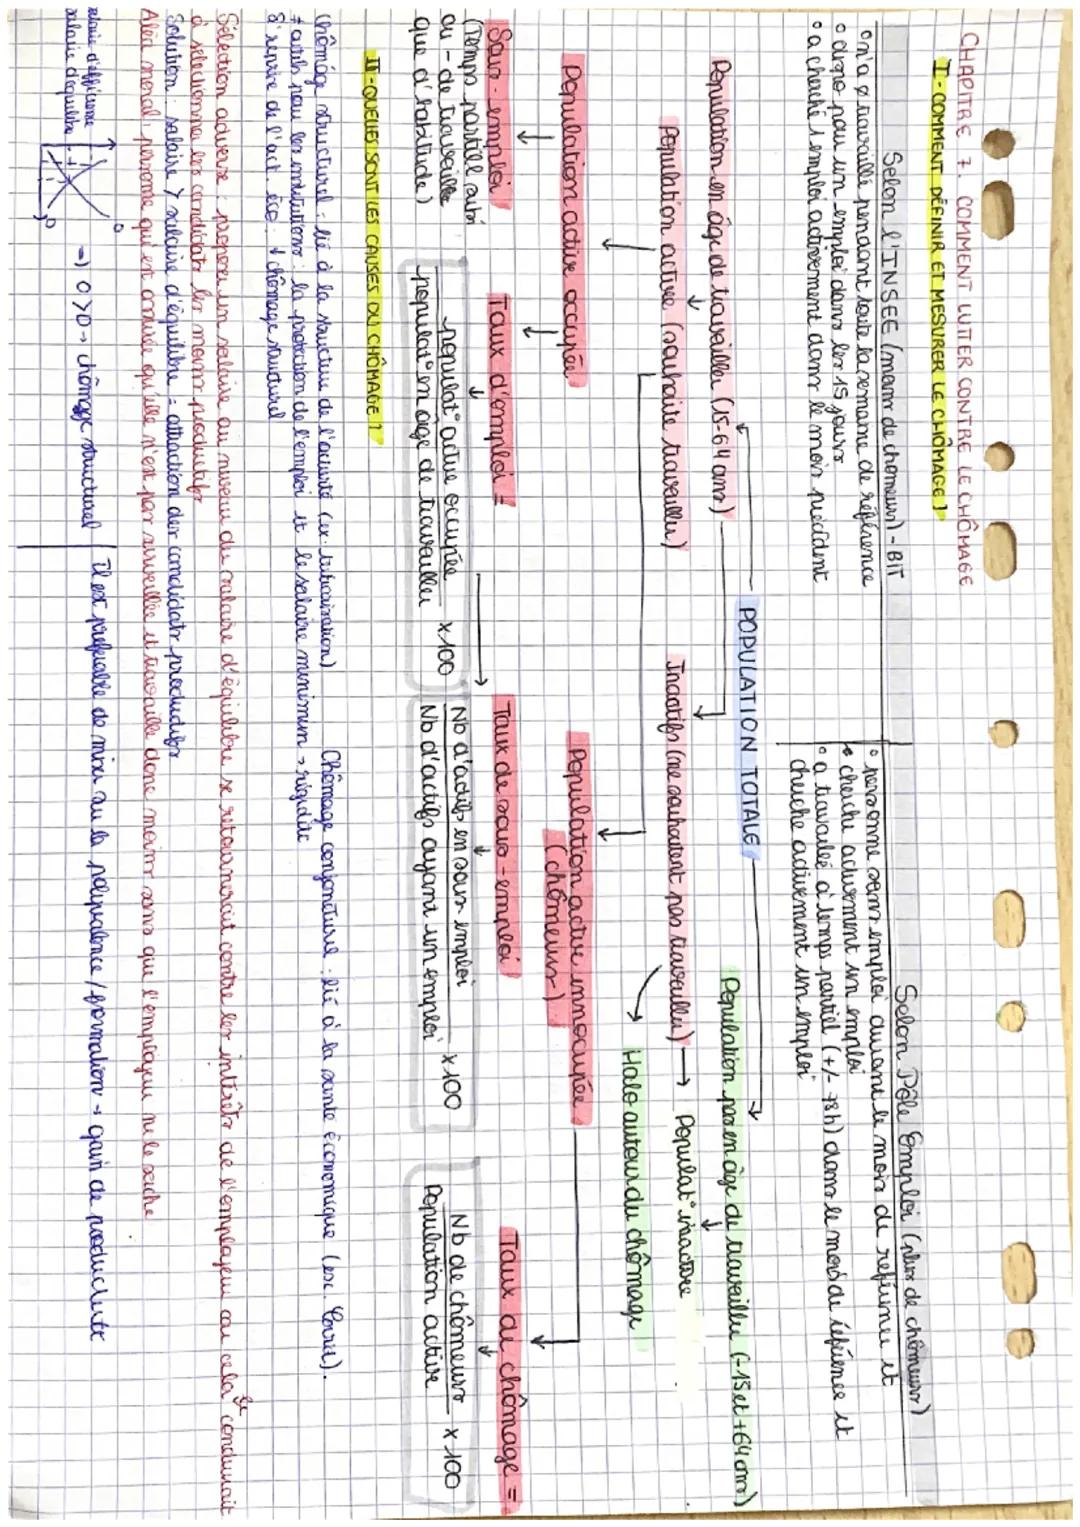 CHAPITRE 7: COMMENT LUTTER CONTRE LE CHÔMAGE
I - COMMENT DÉFINIR ET MESURER LE CHÔMAGE ?
Selon l'INSEE (moins de chômeurs) - BIT
° n'a pas travaillé pendant toute la semaine de référence
° dispo pour un emploi dans les 15 jours
° a cherché 1 emploi activement dans le mois précédent
Selon Pôle Emploi (plus de chômeurs)
° personne sans emploi durant le mois de référence et
cherche activement un emploi
° a travaillé à temps partiel (+/- 78h) dans le mois de référence et
cherche activement un emploi
POPULATION TOTALE
Population en âge de travailler (15-64 ans)
Population pas en âge de travailler (-15 et +64 ans)
Population active (souhaite travailler)
Inactifs (ne souhaitent pas travailler) → Populat° inactive
Halo autour du chômage
Population active occupée
Population active innocupée
(chômeurs)
Sous-emploi
(Temps partiel subi
ou - de travaille
que d'habitude)
Taux d'emploi =
populat° active occupée
populat° en âge de travailler
x100
Taux de sous-emploi
Nb d'actifs en sous emploi
Nb d'actifs ayant un emploi
x100
Taux de chômage =
Nb de chômeurs
Population active
x 100
II - QUELLES SONT LES CAUSES DU CHÔMAGE ?
Chômage structurel : lié à la structure de l'activité (ex: tertiarisation)
Chômage conjoncturel : lié à la santé économique (ex: Covid).
≠ outils pour les institutions : la protection de l'emploi et le salaire minimum → rigidité
Si reprise de l'act° éco : ↓ chômage structurel
Sélection adverse : proposer un salaire au niveau du salaire d'équilibre se retournerait contre les intérêts de l'employeur car cela conduirait
à sélectionner les candidats les moins productifs
Solution : salaire > salaire d'équilibre = attraction des candidats productifs
Aléa moral : personne qui est embauchée qu'elle n'est pas surveillée et travaille donc moins sans que l'employeur ne le sache
salaire d'efficience
salaire d'équilibre
O
D
→ O > D → chômage structurel
Il est préférable de miser sur la polyvalence / formation → gain de productivité